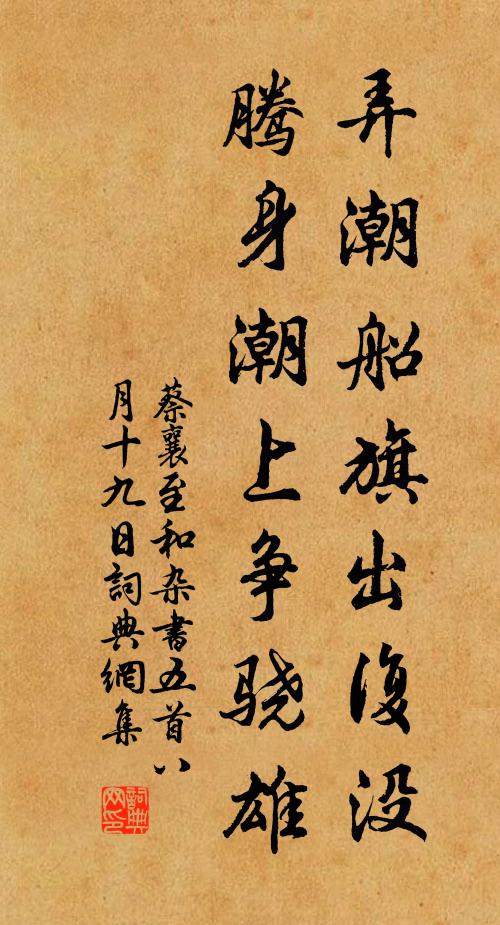 弄潮船旗出復没
腾身潮上争骁雄
蔡襄至和杂書五首八
月十九日詞典網集
詞典網印